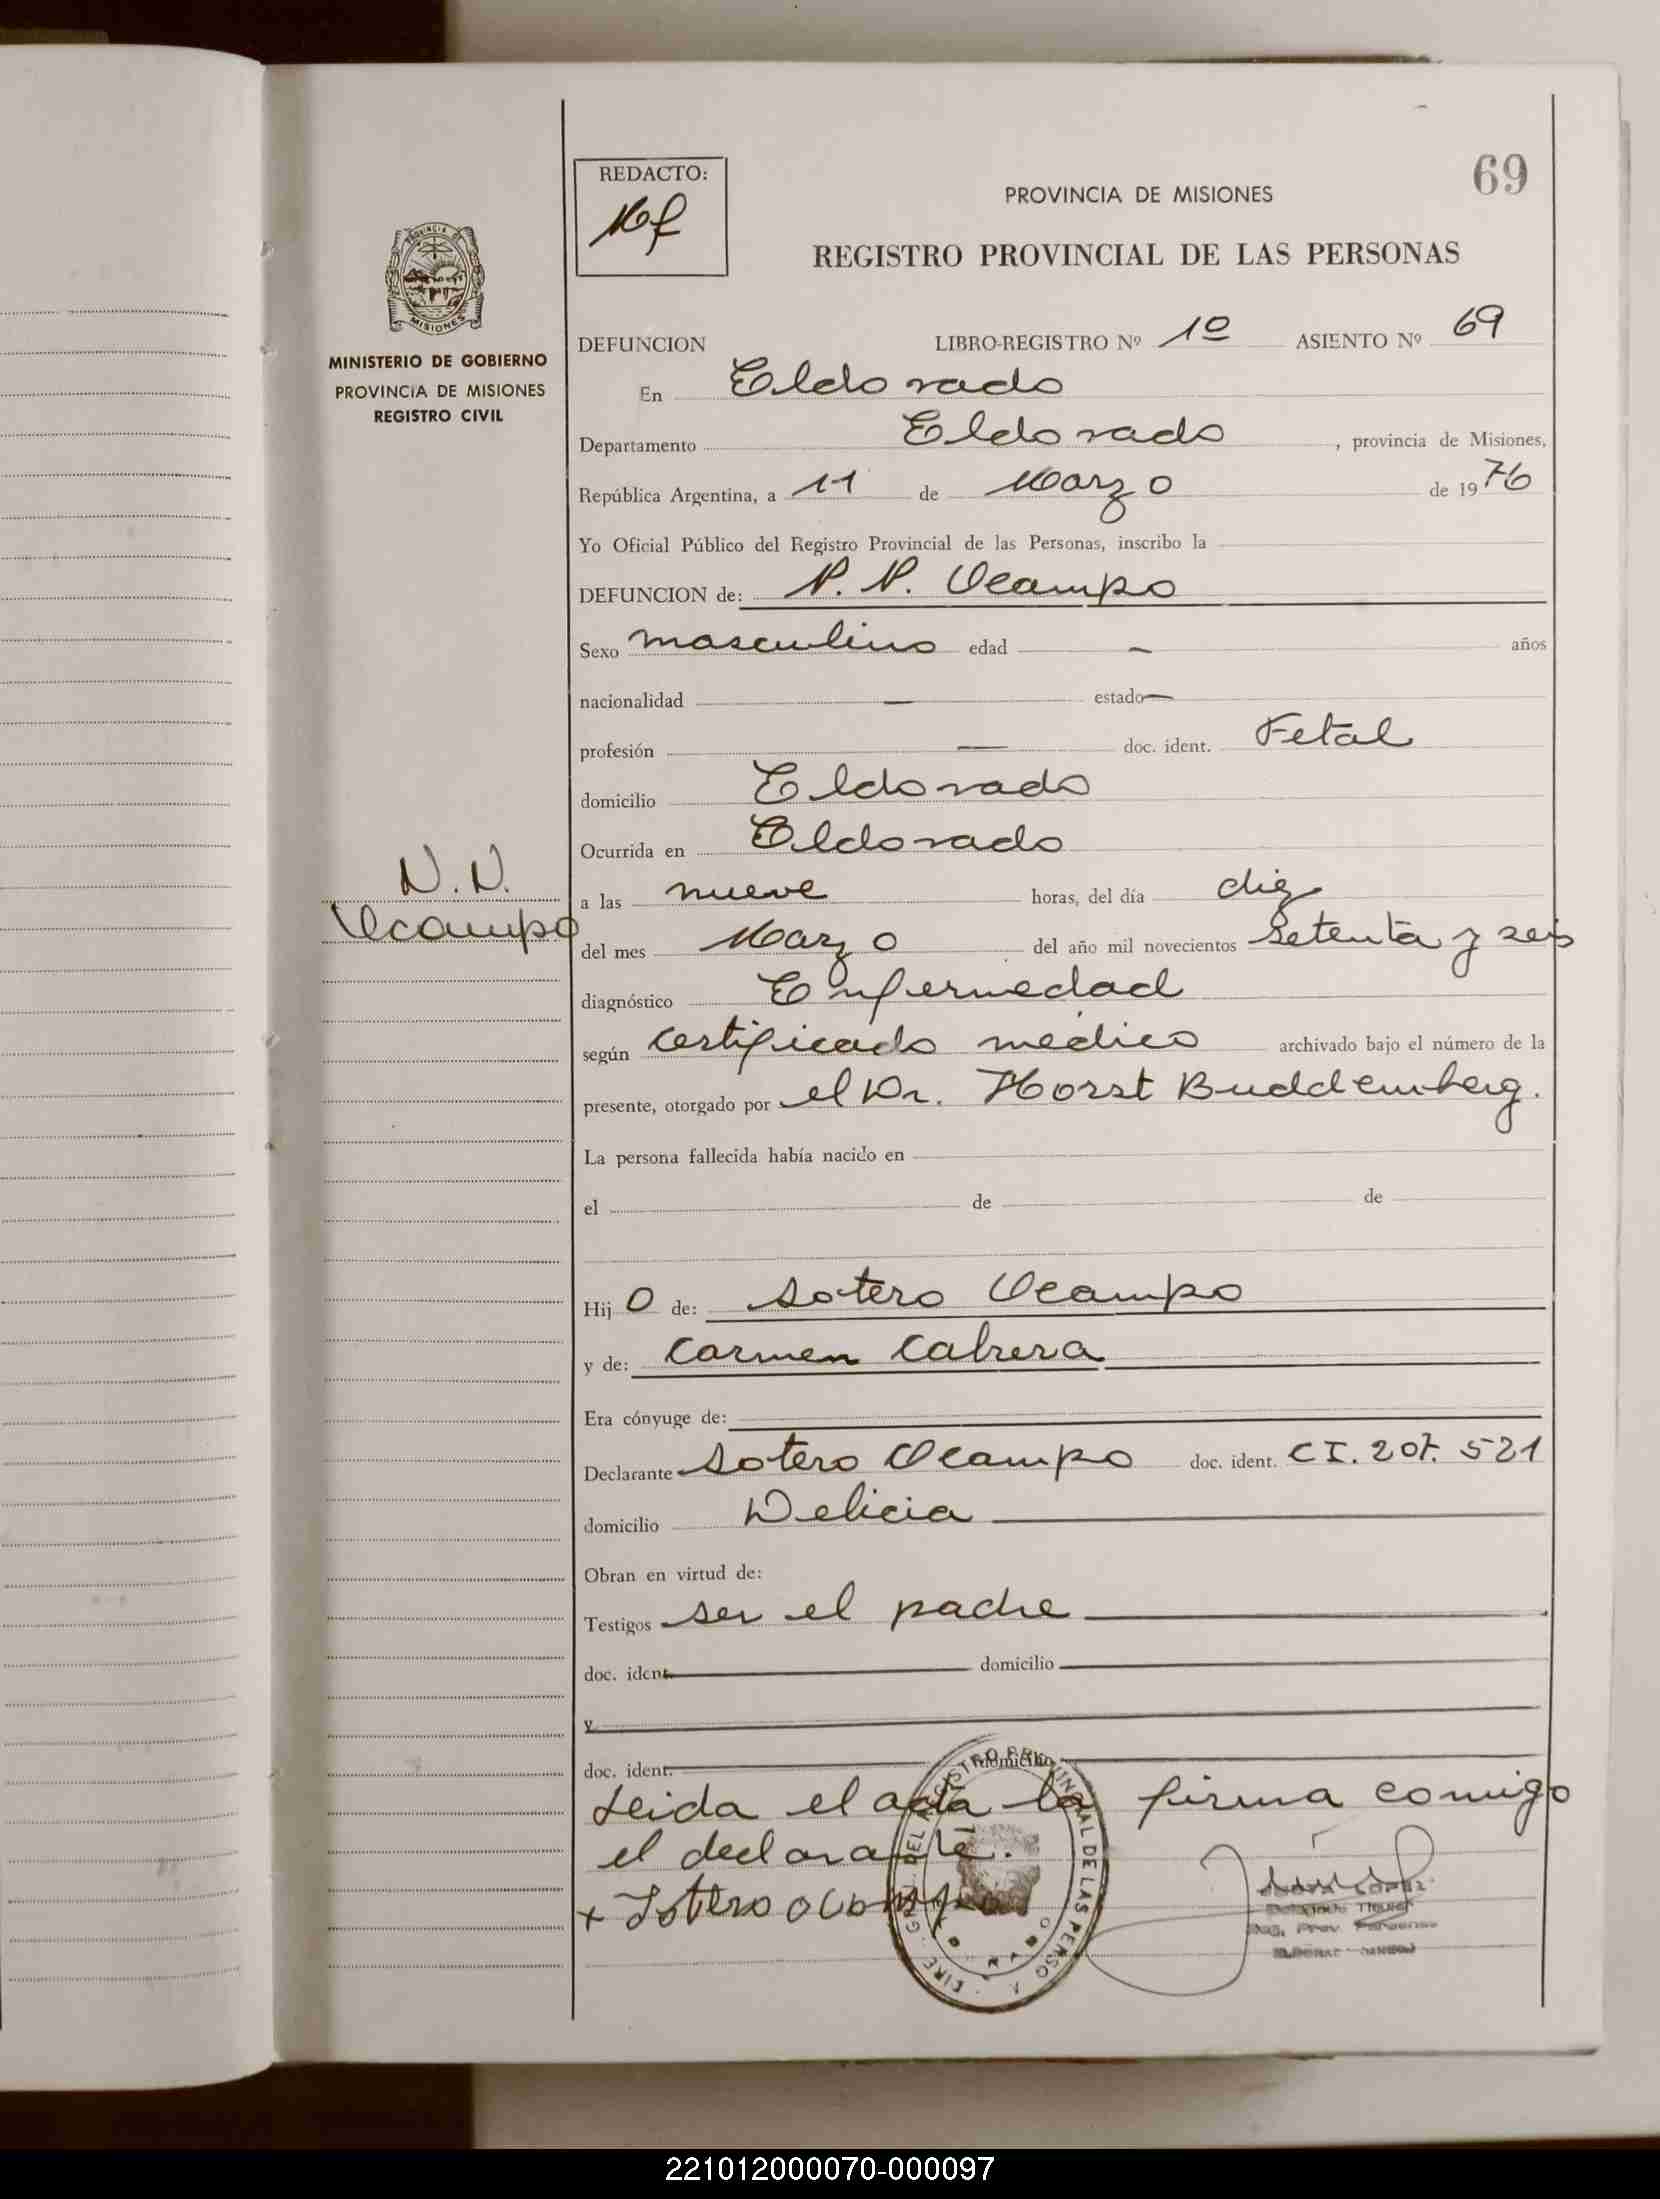 69
REDACTO:
PROVINCIA DE MISIONES
REGISTRO PROVINCIAL DE LAS PERSONAS
MISIONES
MINISTERIO DE GOBIERNO
PROVINCIA DE MISIONES
REGISTRO CIVIL
DEFUNCION LIBRO-REGISTRO Nº 1º ASIENTO Nº 69
En Eldorado
Departamento Eldorado, provincia de Misiones,
República Argentina, a 11 de Marzo de 1976
Yo Oficial Público del Registro Provincial de las Personas, inscribo la
DEFUNCION de: N. N. Ocampo
Sexo masculino edad — años
nacionalidad — estado —
profesión — doc. ident. Fetal
domicilio Eldorado
Ocurrida en Eldorado
N.N.
Ocampo
a las nueve horas, del día diez
del mes Marzo del año mil novecientos setenta y seis
diagnóstico Enfermedad
según certificado médico archivado bajo el número de la
presente, otorgado por el Dr. Horst Buddemberg.
La persona fallecida había nacido en
el de de
Hijo de: Sotero Ocampo
y de: Carmen Cabrera
Era cónyuge de:
Declarante Sotero Ocampo doc. ident. CI. 207. 521
domicilio Delicia
Obran en virtud de:
Testigos ser el padre
doc. ident. domicilio
y
doc. ident. domicilio
Leida el acta la firma comigo
el declarante.
+ Sotero ocampo
DEL REGISTRO PROVINCIAL DE LAS PERSO
221012000070-000097